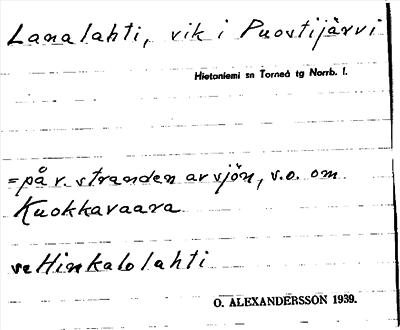 Lanalahti, vik i Puostijärvi
Hietaniemi sn Torneå tg Norrb. l.
= på v. stranden av sjön, s.o. om
Kuokkavaara
se Hinkalolahti
O. ALEXANDERSSON 1939.